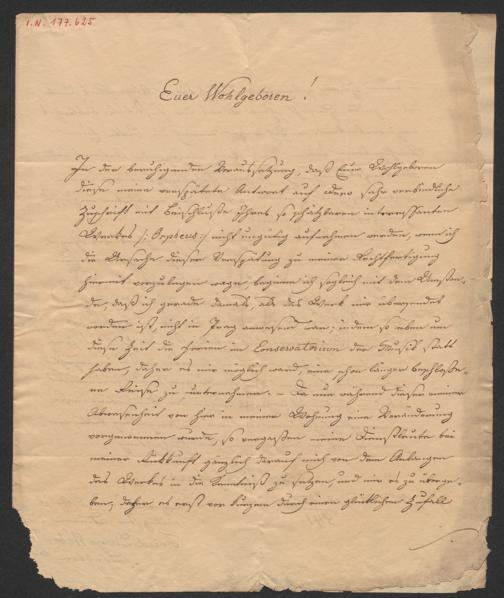 I.N. 177.625
Euer Wohlgeboren!
In der beruhigenden Voraussetzung, daß Euer Wohlgeboren
diese meine verspätete Antwort auf dero sehr verbindliche
Zuschrift mit Beischluße Ihres so schätzbaren interessanten
Werkes /: Orpheus :/ nicht ungütig aufnehmen werden, wenn ich
die Ursache dieser Verspätung zu meiner Rechtfertigung
hiermit vorzulegen wage, beginne ich sogleich mit dem Umstan-
de, daß ich gerade damals, als das Werk mir übersendet
worden ist, nicht in Prag anwesend war; indem so eben um
diese Zeit die Ferien im Conservatorium der Musik statt
haben, daher es mir möglich ward, eine schon länger beschloße-
ne Reise zu unternehmen. – Da nun während dieser meiner
Abwesenheit von hier in meiner Wohnung eine Veränderung
vorgenommen wurde, so vergaßen meine Dienstleute bei
meiner Rückkunft gänzlich darauf mich von dem Anlangen
des Werkes in die Kenntniß zu setzen, und mir es zu überge-
ben, daher es erst vor kurzem durch einen glücklichen Zufall